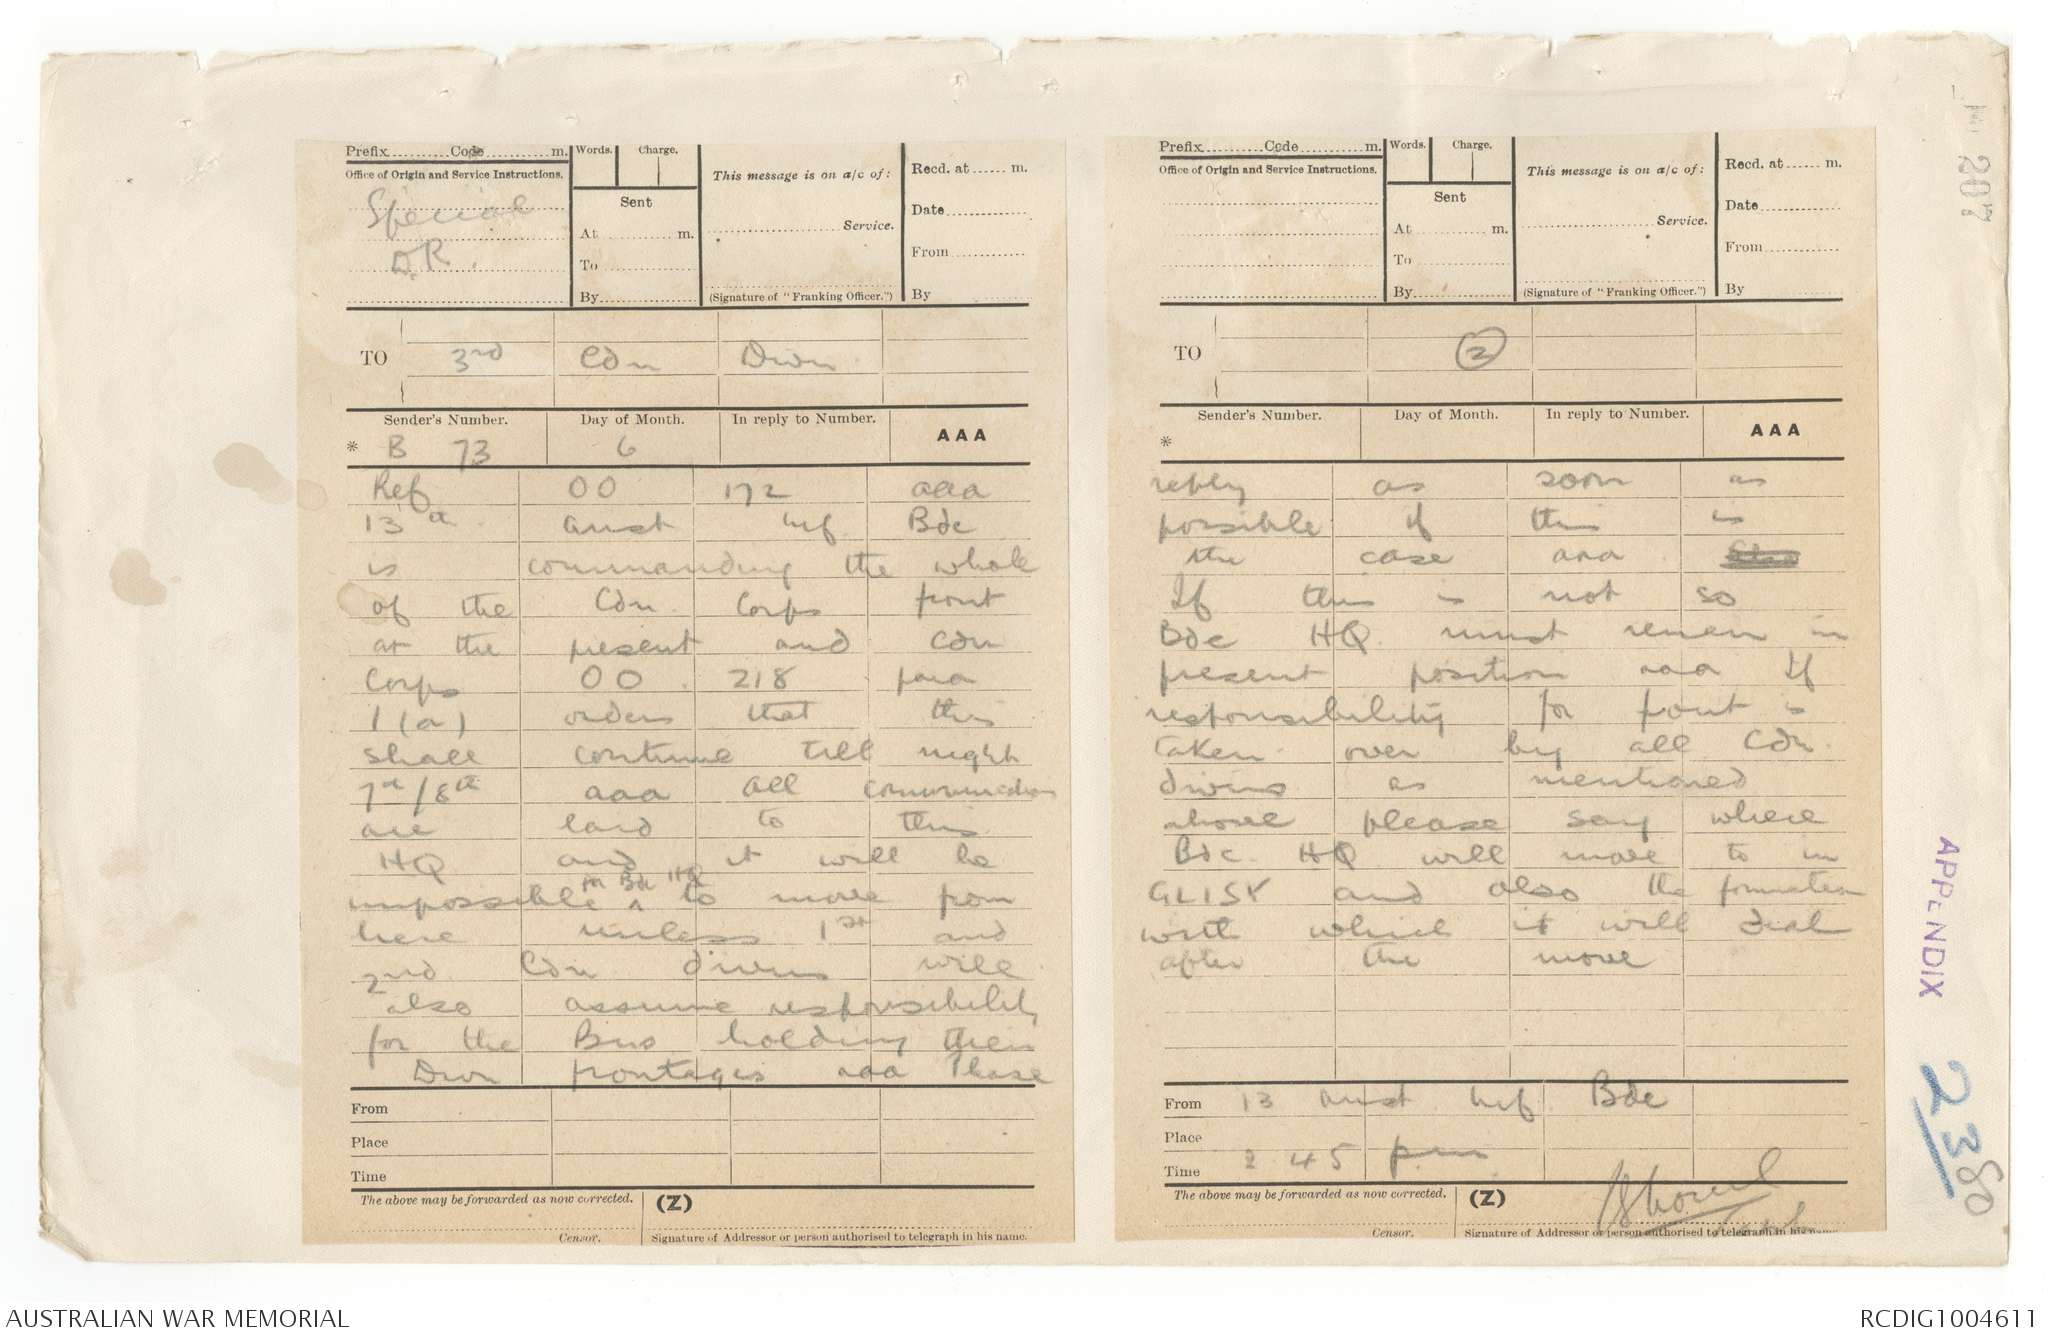 Prefix.......... Code........... m.
Words.
Charge.
This message is on a/c of:
Recd. at...... m.
Office of Origin and Service Instructions.
Special
D.R.
Sent
At ........... m.
To
By
Service.
(Signature of "Franking Officer.")
Date
From
By
TO 3rd Cdn Divn
Sender's Number.
Day of Month.
In reply to Number.
AAA
* B 73 6
Ref OO 172 aaa
13th Aust Inf Bde
is commanding the whole
of the Cdn Corps front
at the present and Cdn
Corps OO 218 para
1(a) orders that this
shall continue till night
7th/8th aaa All communications
are laid to this
HQ and it will be
impossible ^ for Bde HQ to move from
here unless 1st and
2nd Cdn divns will
also assume responsibility
for the Bns holding their
Divn frontages aaa Please
From
Place
Time
The above may be forwarded as now corrected.
(Z)
Censor.
Signature of Addressor or person authorised to telegraph in his name.
Prefix.......... Code........... m.
Words.
Charge.
This message is on a/c of:
Recd. at...... m.
Office of Origin and Service Instructions.
Sent
At ........... m.
To
By
Service.
(Signature of "Franking Officer.")
Date
From
By
TO 2
Sender's Number.
Day of Month.
In reply to Number.
AAA
*
reply as soon as
possible if this is
the case aaa
If this is not so
Bde HQ must remain in
present position aaa If
responsibility for front is
taken over by all Cdn
divns as mentioned
above please say where
Bde HQ will move to in
GLISY and also the formation
with which it will deal
after the move
From 13 Aust Inf Bde
Place
Time 2.45 pm
The above may be forwarded as now corrected.
(Z)
Censor.
Signature of Addressor or person authorised to telegraph in his name
207
APPENDIX
23
AUSTRALIAN WAR MEMORIAL
RCDIG1004611